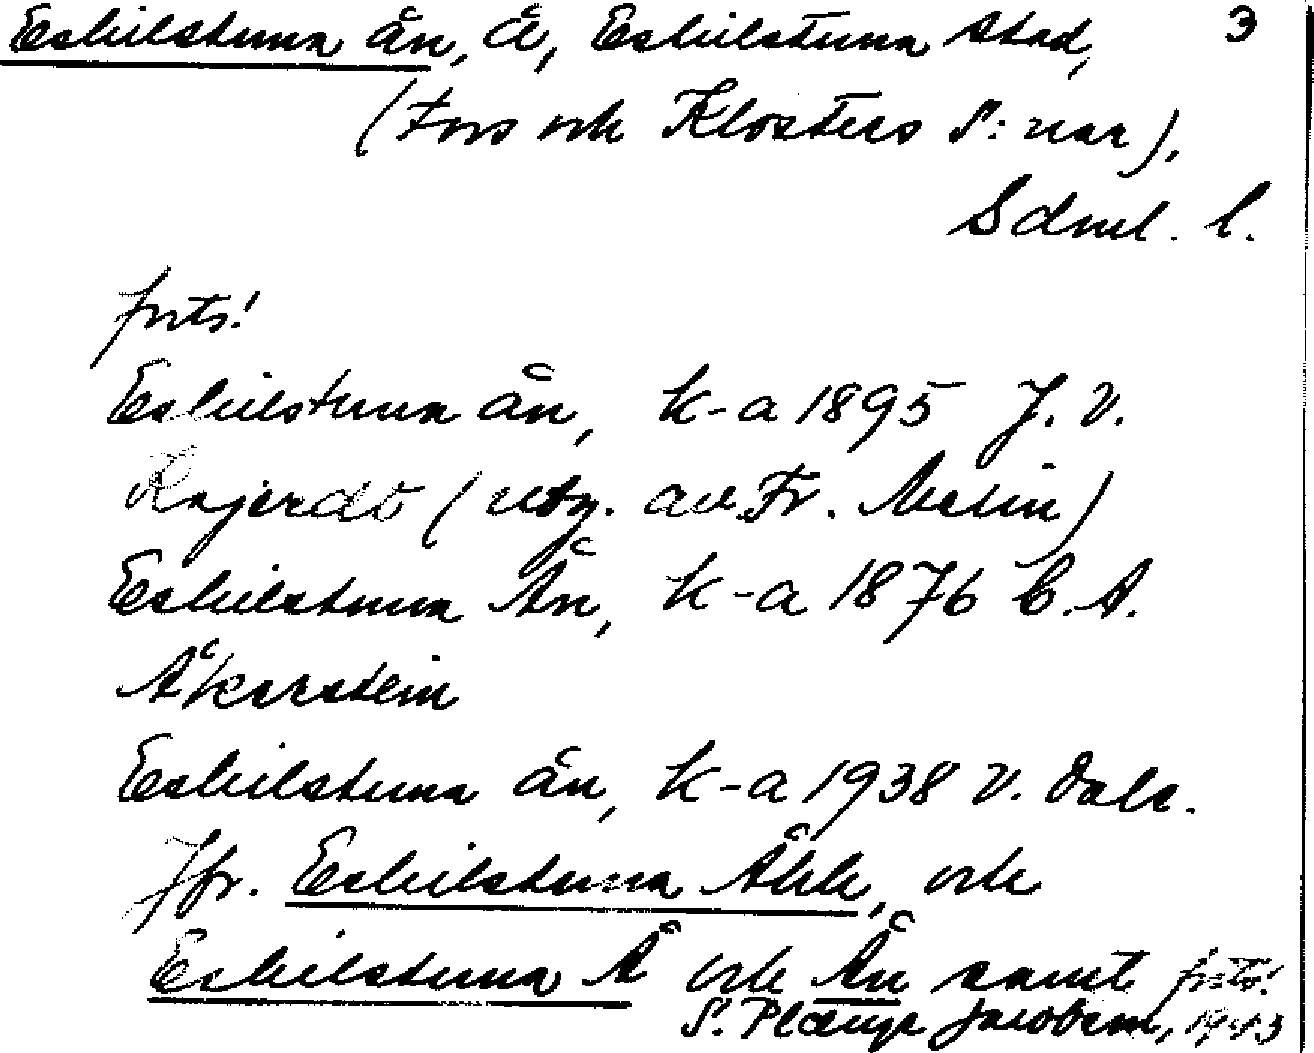 Eskilstuna ån, å, Eskilstuna stad, 3
(Fors och Klosters S:nar),
Sdml. l.
forts!
Eskilstuna ån, k-a 1895 J. V.
(utg. av Fr. Melin)
Eskilstuna Ån, k-a 1876 C. A.
Åkerstein
Eskilstuna ån, k-a 1938 V. Dale.
Jfr. Eskilstuna Åhh, och
Eskilstuna Å och Ån samt forts!
S. Jacobson, 1943